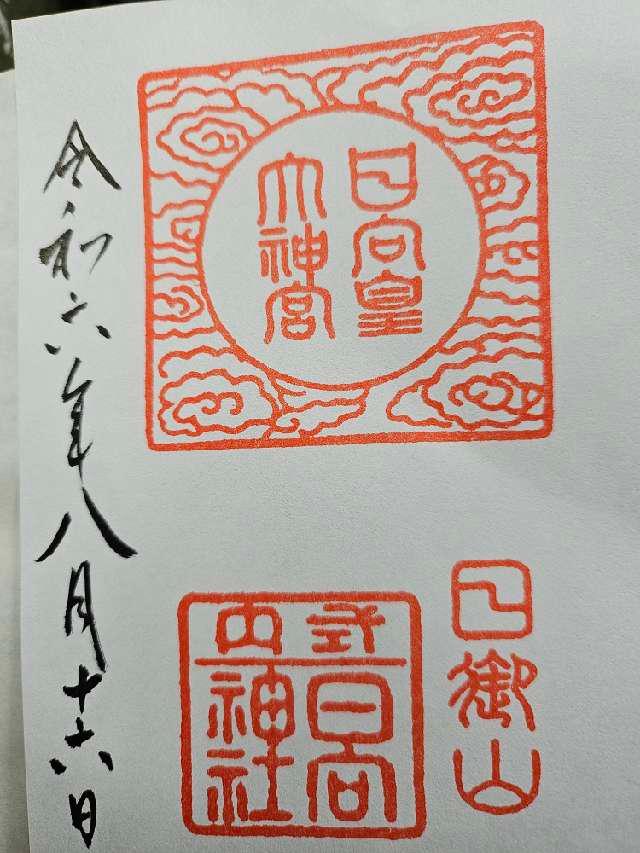 日向皇
大神宮
日御山
式内
日向
神社
令和六年八月十六日